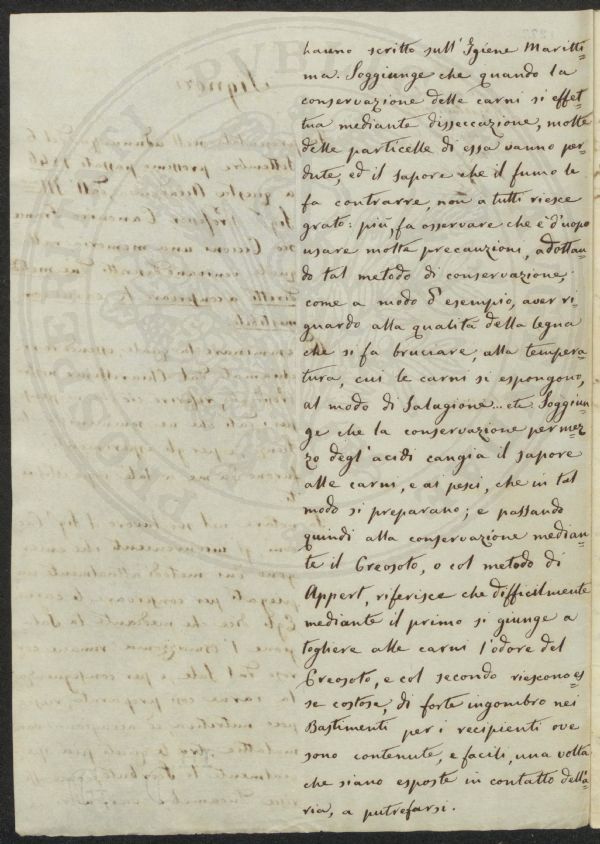 hanno scritto sull'Igiene Maritti=
ma. Soggiunge che quando la
conservazione delle carni si effet=
tua mediante disseccazione, molte
delle particelle di essa vanno per=
dute, ed il sapore che il fumo le
fa contrarre, non a tutti riesce
grato: più, fa osservare che è d'uopo
usare molte precauzioni, adottan=
do tal metodo di conservazione,
come a modo d'esempio, aver ri=
guardo alla qualità della legna
che si fa bruciare, alla tempera=
tura, cui le carni si espongono,
al modo di Salagione... etc. Soggiun=
ge che la conservazione per mez=
zo degl'acidi cangia il sapore
alle carni, e ai pesci, che in tal
modo si preparano; e passando
quindi alla conservazione median=
te il Creosoto, o col metodo di
Appert, riferisce che difficilmente
mediante il primo si giunge a
togliere alle carni l'odore del
Creosoto, e col secondo riescono es=
se costose, di forte ingombro nei
Bastimenti per i recipienti ove
sono contenute, e facili, una volta
che siano esposte in contatto dell'a=
ria, a putrefarsi.